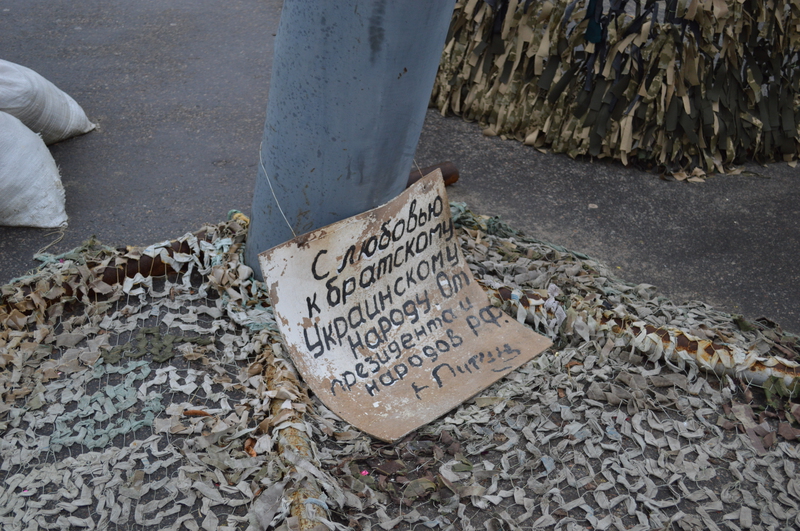 С любовью
к братскому
Украинскому
народу. От
президента и
народов РФ